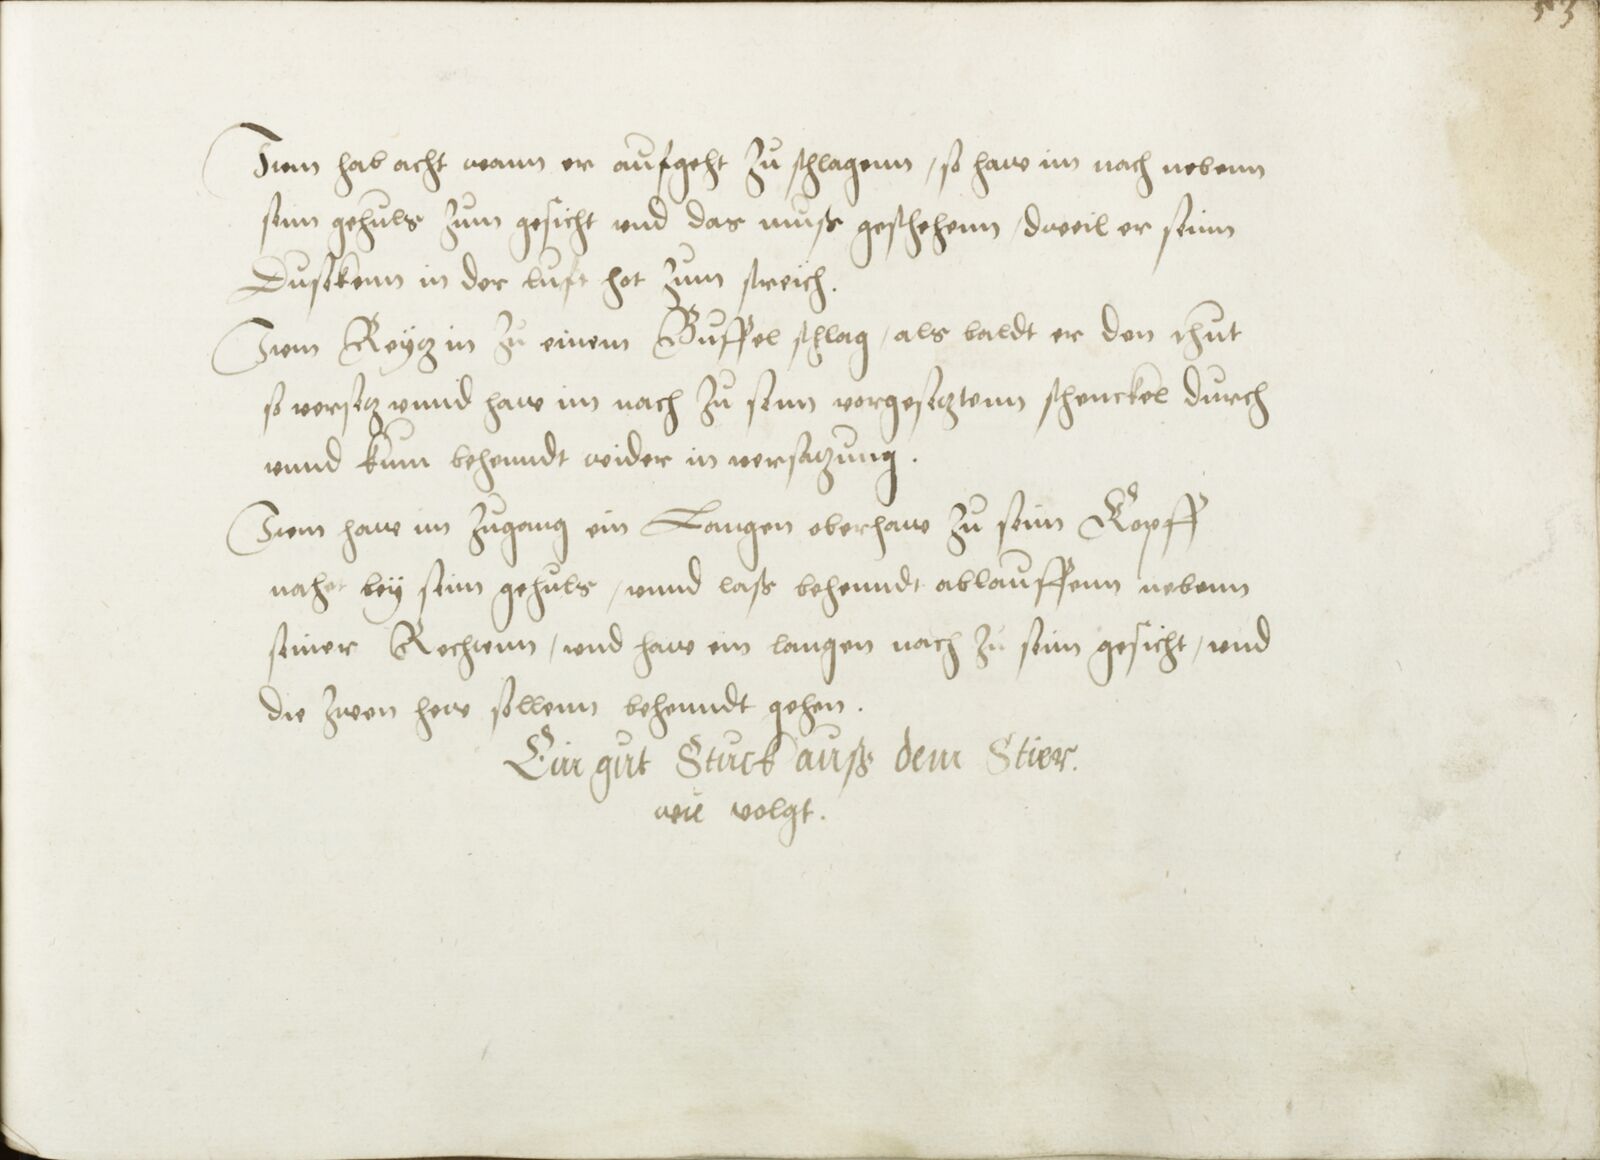 53
Item hab acht wann er aufgeht zu schlagenn / so haw im nach nebenn
seim gehulz zum gesicht vnd das muß geschehenn / dweil er seinn
Dusekenn in der luft hot zum streich.
Item Reytz in zu einem Buffel schlag / als baldt er den thut
so versetz vnnd haw im nach zu seim vorgesetztenn schenckel durch
vnnd kum behenndt wider in versatzung.
Item haw im zugang ein Langen oberhaw zu seim Kopff
nahet bey seim gehulz / vnnd laß behenndt ablauffenn nebenn
seiner Rechtenn / vnd haw ein langen nach zu seim gesicht / vnd
die zwen hew sollenn behenndt gehen.
Ein gut Stuck auß dem Stier.
wie volgt.